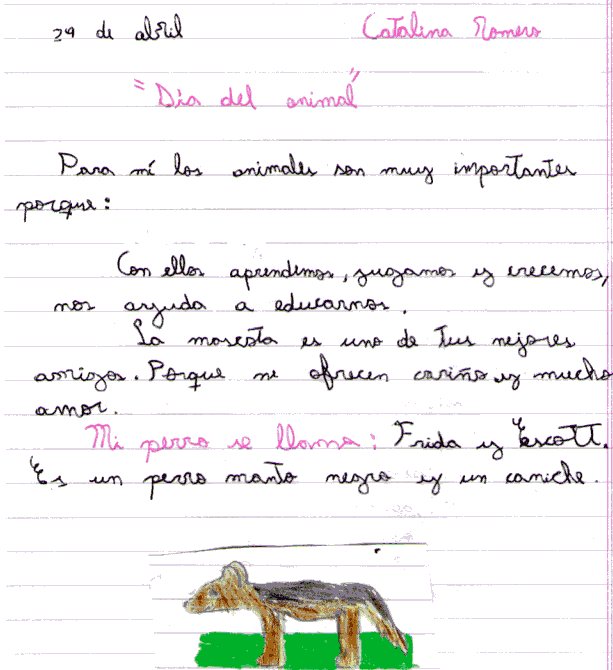 29 de abril
Catalina Romero
"Día del animal"
Para mí los animales son muy importantes
porque:
Con ellos aprendemos, jugamos y crecemos,
nos ayuda a educarnos.
La mascota es uno de tus mejores
amigos. Porque me ofrecen cariño y mucho
amor.
Mi perro se llama: Frida y Escott.
Es un perro manto negro y un caniche.